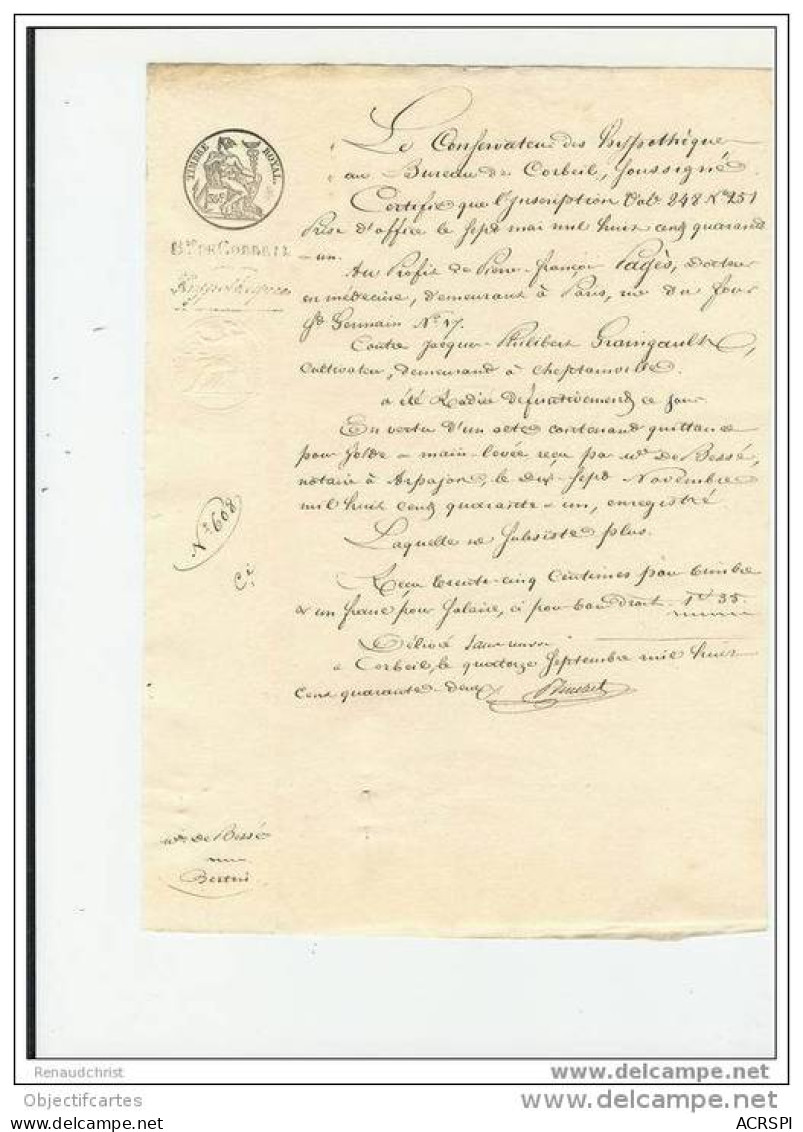 TIMBRE ROYAL
Bau DE CORBEIL
Hypothèques
Le Conservateur des hypothèques
au Bureau de Corbeil, Soussigné
Certifie que l'Inscription Vol. 248 No 251
Prise d'office le Sept mai mil huit cent quarante
-un.
Au Profit de Pierre-françois Pagès, Docteur
en médecine, demeurant à Paris, rue du four
St Germain No 17.
Contre jacques-Philibert Graingault,
Cultivateur, demeurant à Cheptainville.
a été Radiée définitivement ce jour
En vertu d'un acte contenant quittance
pour solde - main-levée reçu par Me de Bessé,
notaire à Arpajon, le dix-sept Novembre
mil huit cent quarante-un, enregistré.
Laquelle ne Subsiste plus.
No 608
Reçu trente-cinq Centimes pour timbre
& un franc pour Salaire, ci pour tout Droit 1f 35.
Délivré
à Corbeil, le quatorze Septembre mil huit
Cent quarante-deux
Me de Bessé
Renaudchrist
delcampe.net
Objectifcartes
delcampe.net
ACRSPI